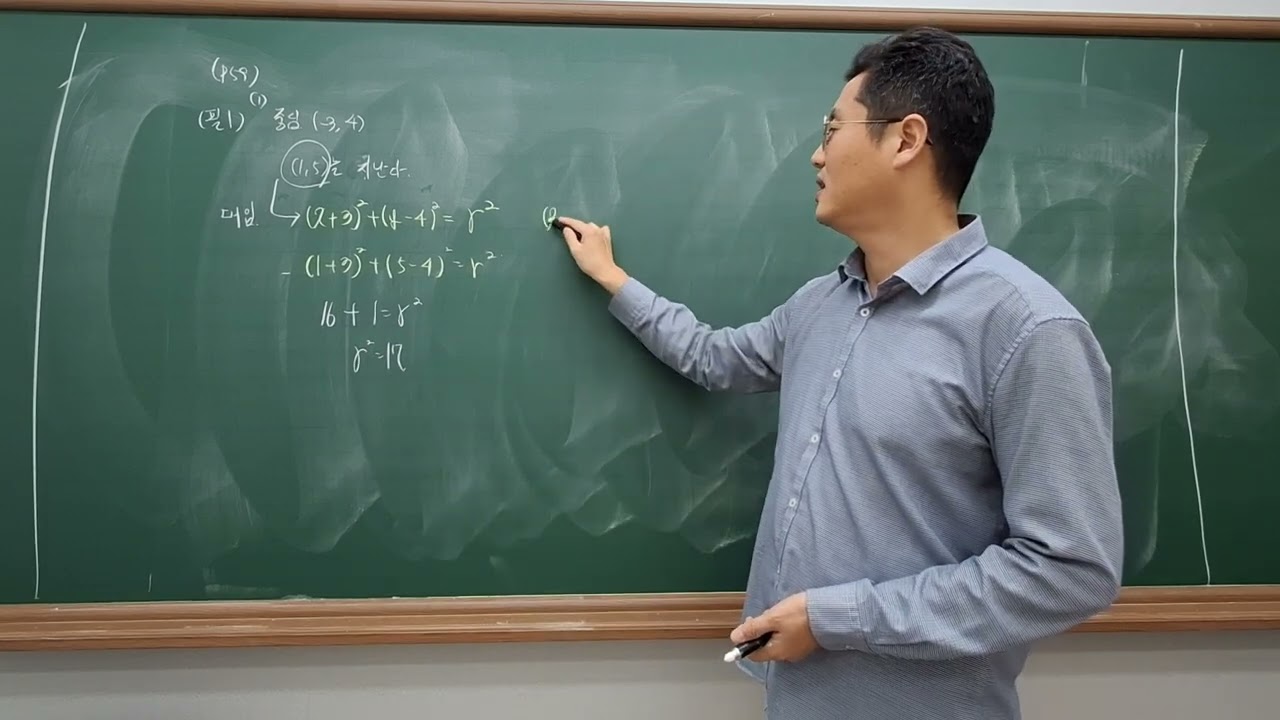 (p59)
(필1) (1) 중심 (-3, 4)
(1, 5)를 지난다.
대입. → (x+3)²+(y-4)² = r²
- (1+3)²+(5-4)² = r²
16 + 1 = r²
r² = 17